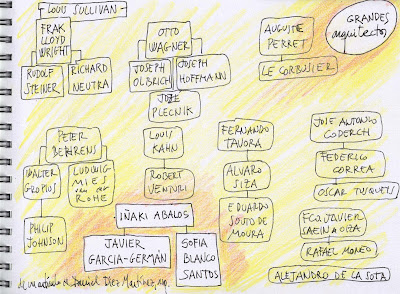 LOUIS SULLIVAN
FRAK
LLOYD
WRIGHT
RUDOLF
STEINER
RICHARD
NEUTRA
OTTO
WAGNER
JOSEPH
OLBRICH
JOSEPH
HOFFMANN
JOZE
PLECNIK
AUGUSTE
PERRET
LE CORBUSIER
GRANDES
arquitectos
PETER
BEHRENS
WALTER
GROPIUS
LUDWIG
MIES
van der
ROHE
PHILIP
JOHNSON
LOUIS
KAHN
ROBERT
VENTURI
IÑAKI ABALOS
JAVIER
GARCIA-GERMÁN
SOFIA
BLANCO
SANTOS
FERNANDO
TAVORA
ALVARO
SIZA
EDUARDO
SOUTO DE
MOURA
JOSE ANTONIO
CODERCH
FEDERICO
CORREA
OSCAR TUSQUETS
FCO. JAVIER
SAENZ DE OIZA
RAFAEL MONEO
ALEJANDRO DE LA SOTA
de un artículo de Daniel Díez Martínez,